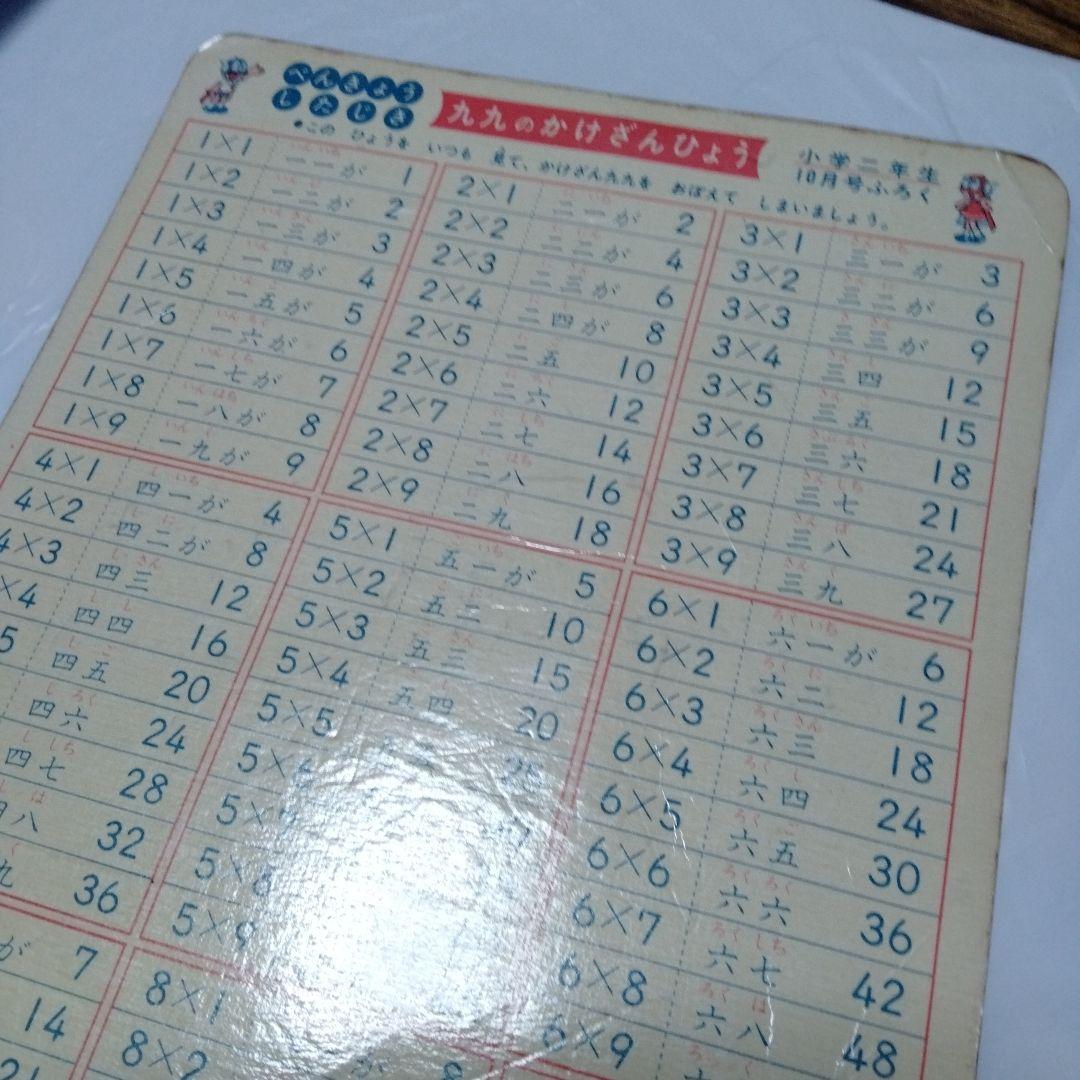 べんきょう
したじき
九九のかけざんひょう
小学二年生
10月号ふろく
●この ひょうを いつも 見て、かけざん九九を おぼえて しまいましょう。
1×1 一一が 1
1×2 一二が 2
1×3 一三が 3
1×4 一四が 4
1×5 一五が 5
1×6 一六が 6
1×7 一七が 7
1×8 一八が 8
1×9 一九が 9
2×1 二一が 2
2×2 二二が 4
2×3 二三が 6
2×4 二四が 8
2×5 二五 10
2×6 二六 12
2×7 二七 14
2×8 二八 16
2×9 二九 18
3×1 三一が 3
3×2 三二が 6
3×3 三三が 9
3×4 三四 12
3×5 三五 15
3×6 三六 18
3×7 三七 21
3×8 三八 24
3×9 三九 27
4×1 四一が 4
4×2 四二が 8
4×3 四三 12
×4 四四 16
5 四五 20
四六 24
四七 28
八 32
九 36
5×1 五一が 5
5×2 五二 10
5×3 五三 15
5×4 五四 20
5×5
5×6
5×
5×8
5×9
6×1 六一が 6
6×2 六二 12
6×3 六三 18
6×4 六四 24
6×5 六五 30
6×6 六六 36
6×7 六七 42
6×8 六八 48
6×9
が 7
14
8×1 が 8
8×2